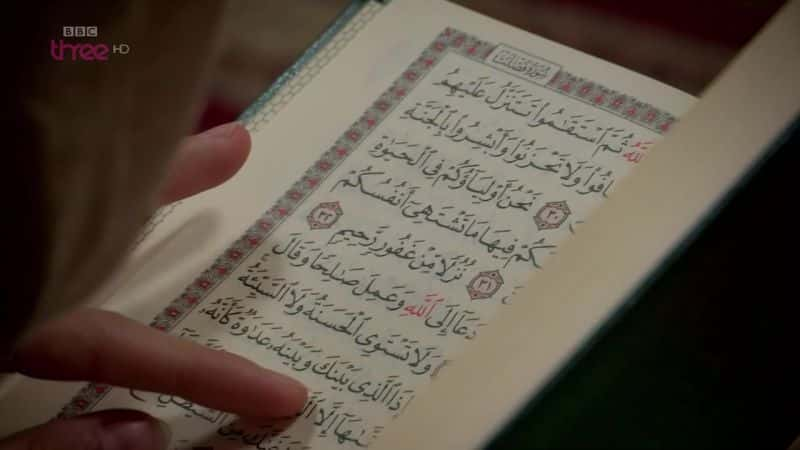 BBC
three HD
سُورَةُ فُصِّلَتْ
ٱللَّهُ ثُمَّ ٱسْتَقَٰمُوا۟ تَتَنَزَّلُ عَلَيْهِمُ
تَخَافُوا۟ وَلَا تَحْزَنُوا۟ وَأَبْشِرُوا۟ بِٱلْجَنَّةِ
٣٠ نَحْنُ أَوْلِيَآؤُكُمْ فِى ٱلْحَيَوٰةِ
لَكُمْ فِيهَا مَا تَشْتَهِىٓ أَنفُسُكُمْ
٣١ نُزُلًا مِّنْ غَفُورٍ رَّحِيمٍ ٣٢
دَعَآ إِلَى ٱللَّهِ وَعَمِلَ صَٰلِحًا وَقَالَ
وَلَا تَسْتَوِى ٱلْحَسَنَةُ وَلَا ٱلسَّيِّئَةُ
فَإِذَا ٱلَّذِى بَيْنَكَ وَبَيْنَهُۥ عَدَٰوَةٌ كَأَنَّهُۥ
يُلَقَّىٰهَآ إِلَّا